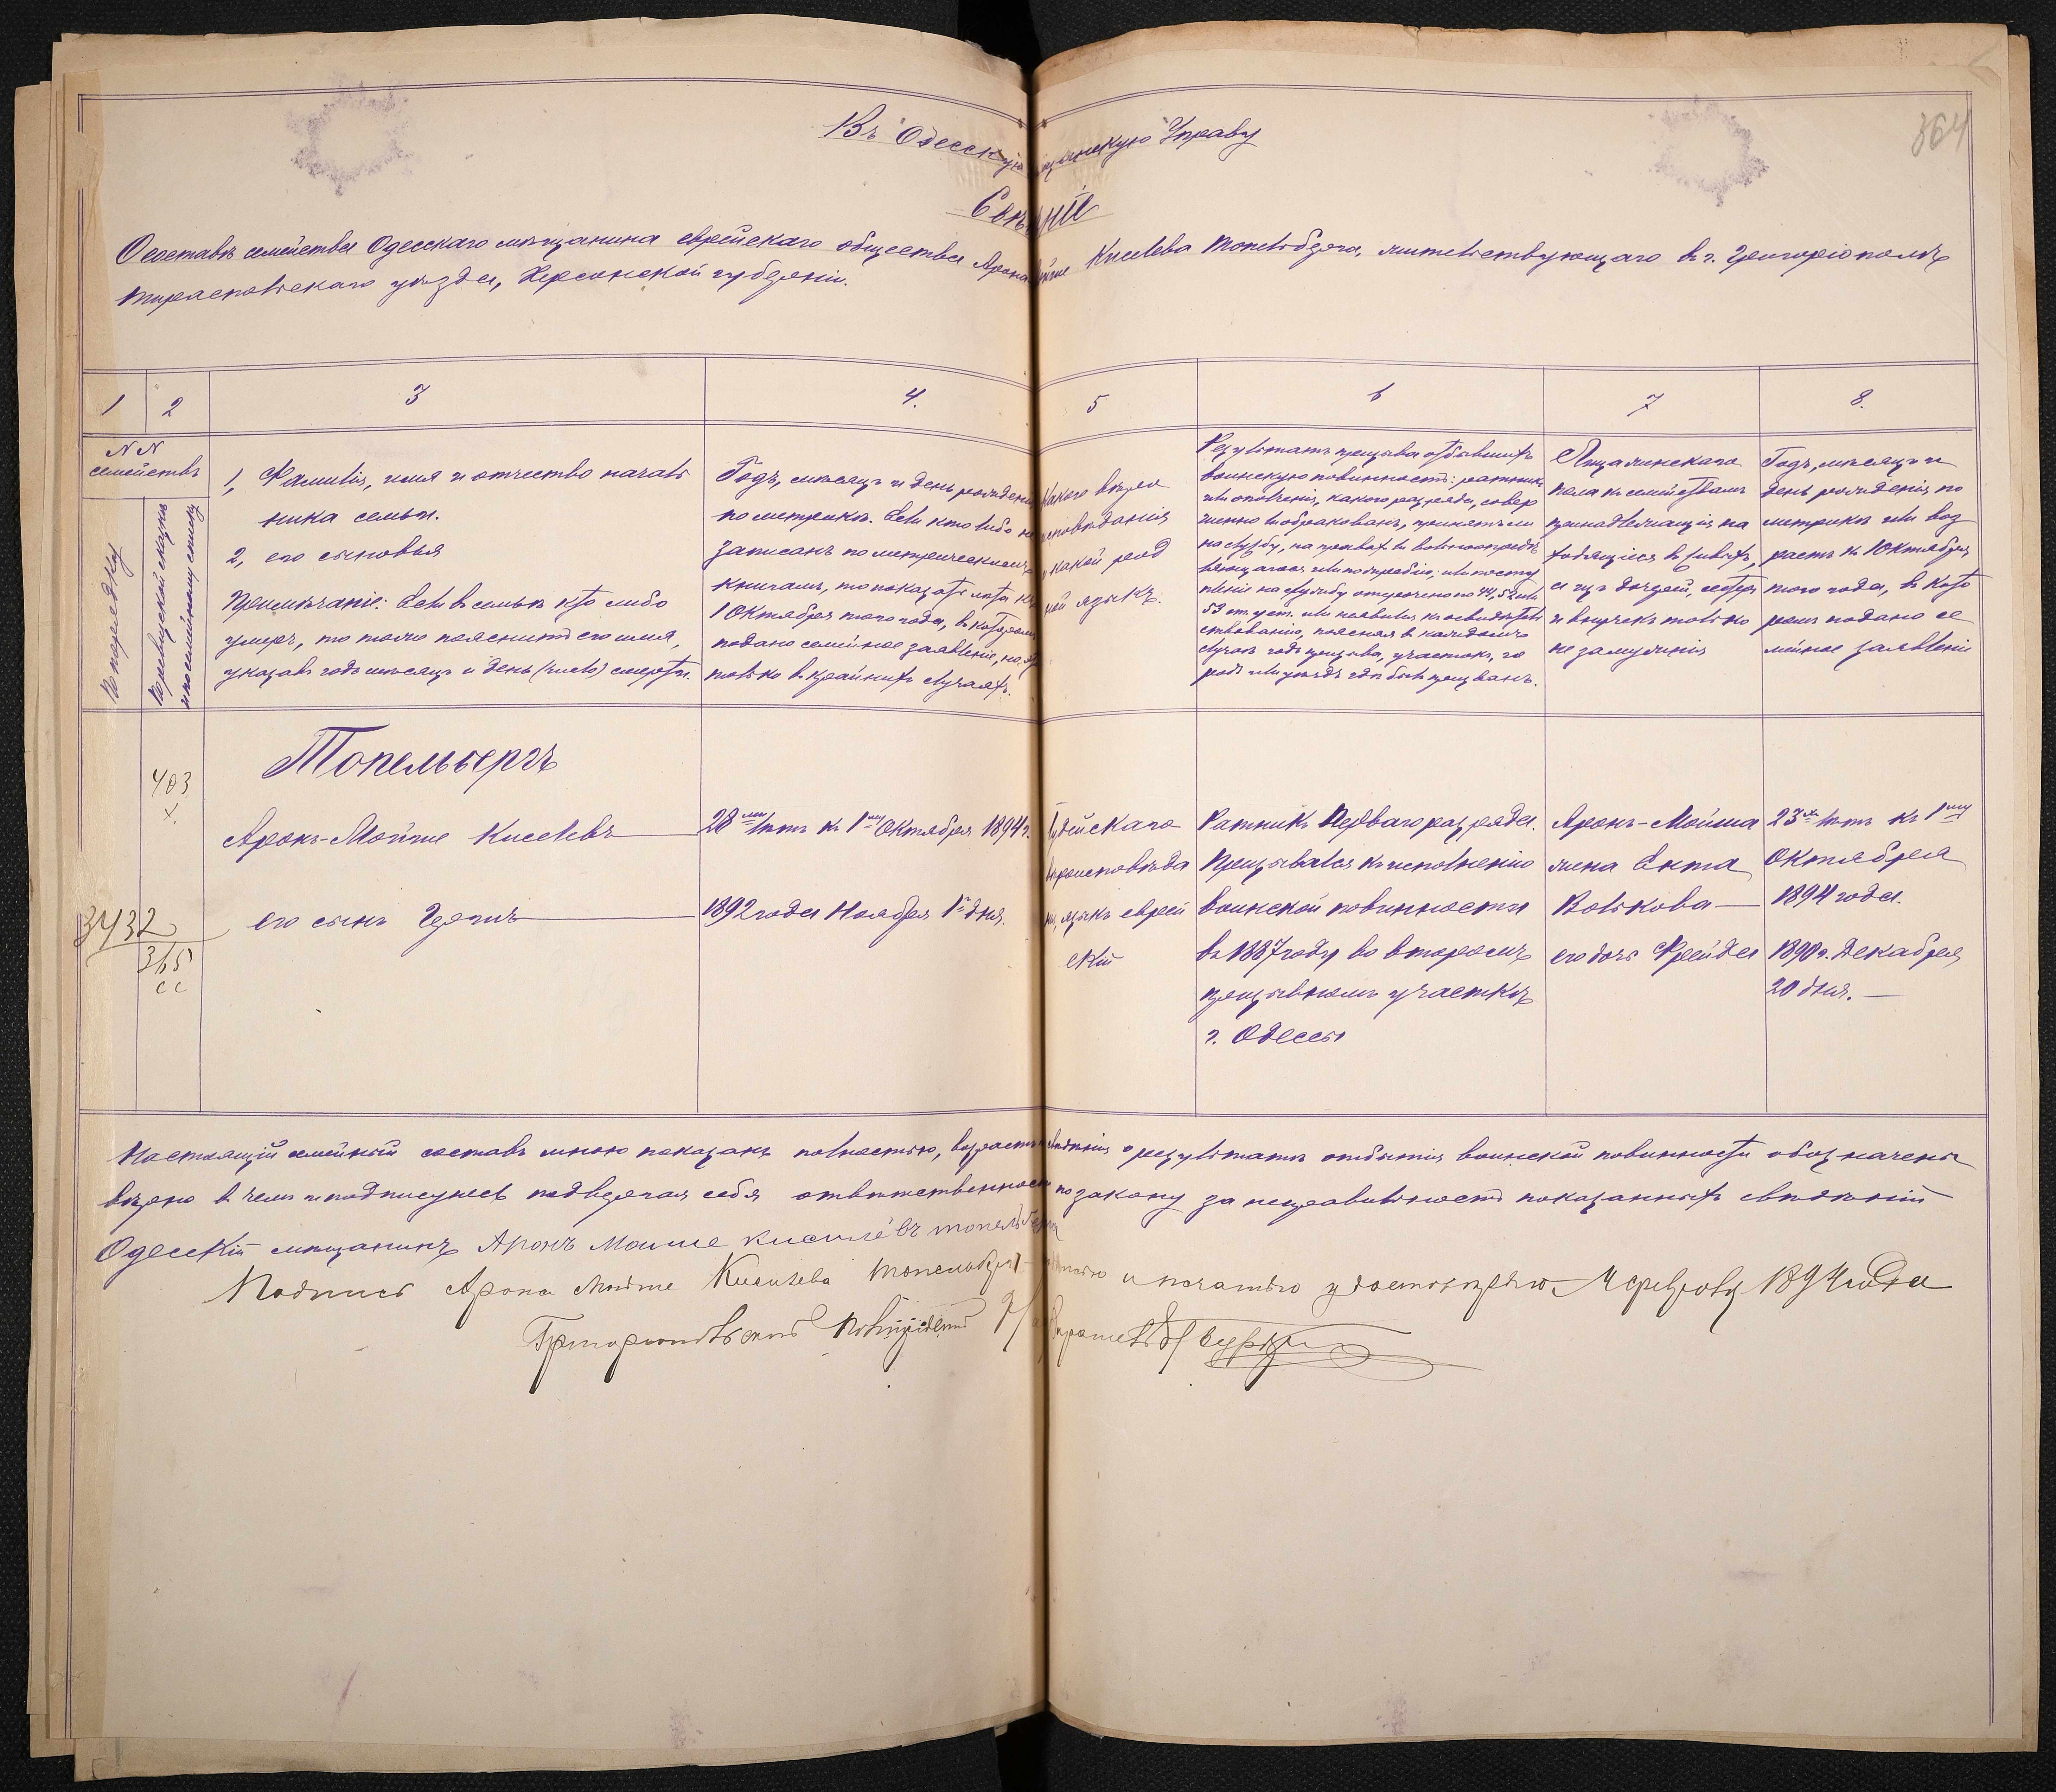 Въ Одесскую мѣщанскую Управу
364
Свѣдѣніе
О составѣ семейства Одесскаго мѣщанина еврейскаго общества Арона Мойше Киселева Топельберга, жительствующаго въ г. Григоріополѣ
Тираспольскаго уѣзда, Херсонской губерніи.
1 2 3 4. 5 6 7 8.
NN
семействъ
По порядку
По ревизской сказкѣ
и посемейному списку
1, Фамилія, имя и отчество началь
ника семьи.
2, его сыновья
Примѣчаніе: Если въ семьѣ кто либо
умеръ, то точно пояснить его имя,
указавъ годъ мѣсяцъ и день (число) смерти.
Годъ, мѣсяцъ и день рожденія
по метрикѣ. Если кто либо не
записанъ по метрическимъ
книгамъ, то показать лѣта къ
1 Октября того года, въ которомъ
подано семейное заявленіе, но это
только въ крайнихъ случаяхъ.
Какого вѣро
исповѣданія
и какой род
ной языкъ.
Результатъ призыва отбывшихъ
воинскую повинность: ратникъ
или ополченія, какого разряда, совер
шенно ли обракованъ, принятъ ли
на службу, на правах ли вольноопредѣ
ляющагося или по жребію; или посту
пленіе на службу отсрочено по 44, 52 или
53 ст. уст. или не явился къ освидѣтель
ствованію, поясняя въ каждомъ
случаѣ годъ призыва, участокъ, го
родъ или уѣздъ гдѣ былъ призванъ.
Лица женскаго
пола къ семействамъ
принадлежащія на
ходящіеся въ живыхъ,
а изъ дочерей, сестеръ
и внучекъ только
не замужнія
Годъ, мѣсяцъ и
день рожденія по
метрикѣ или воз
растъ къ 1 Октября
того года, въ кото
ромъ подано се
мейное заявленіе
Топельбергъ
403
X.
Аронъ-Мойше Киселевъ
28 ми лѣтъ къ 1 му Октября 1894 г.
Іудейскаго
вѣроисповѣда
нія, языкъ еврей
скій
Ратникъ Перваго разряда.
Призывался къ исполненію
воинской повинности
въ 1887 году во второмъ
призывномъ участкѣ
г. Одессы
Аронъ-Мойша
жена Ента
Волькова
его дочь Фрейда
23 хъ лѣтъ къ 1 му
Октября
1894 года.
1890 г. Декабря
20 дня.
3432
365
сс
его сынъ Герш
1892 года Ноября 1 го дня.
Настоящій семейный составъ мною показанъ полностью, возрастъ свѣдѣнія о результатѣ отбытія воинской повинности обозначены
вѣрно въ чемъ и подписуюсь подвергая себя отвѣтственности по закону за неправильность показанныхъ свѣдѣній
Одесскій мѣщанинъ Аронъ Моише Кисилёвъ топельберг
Подпись Арона Мойше Киселева Топельберга и печатью удостовѣряю 1894 года
Григоріопольскій